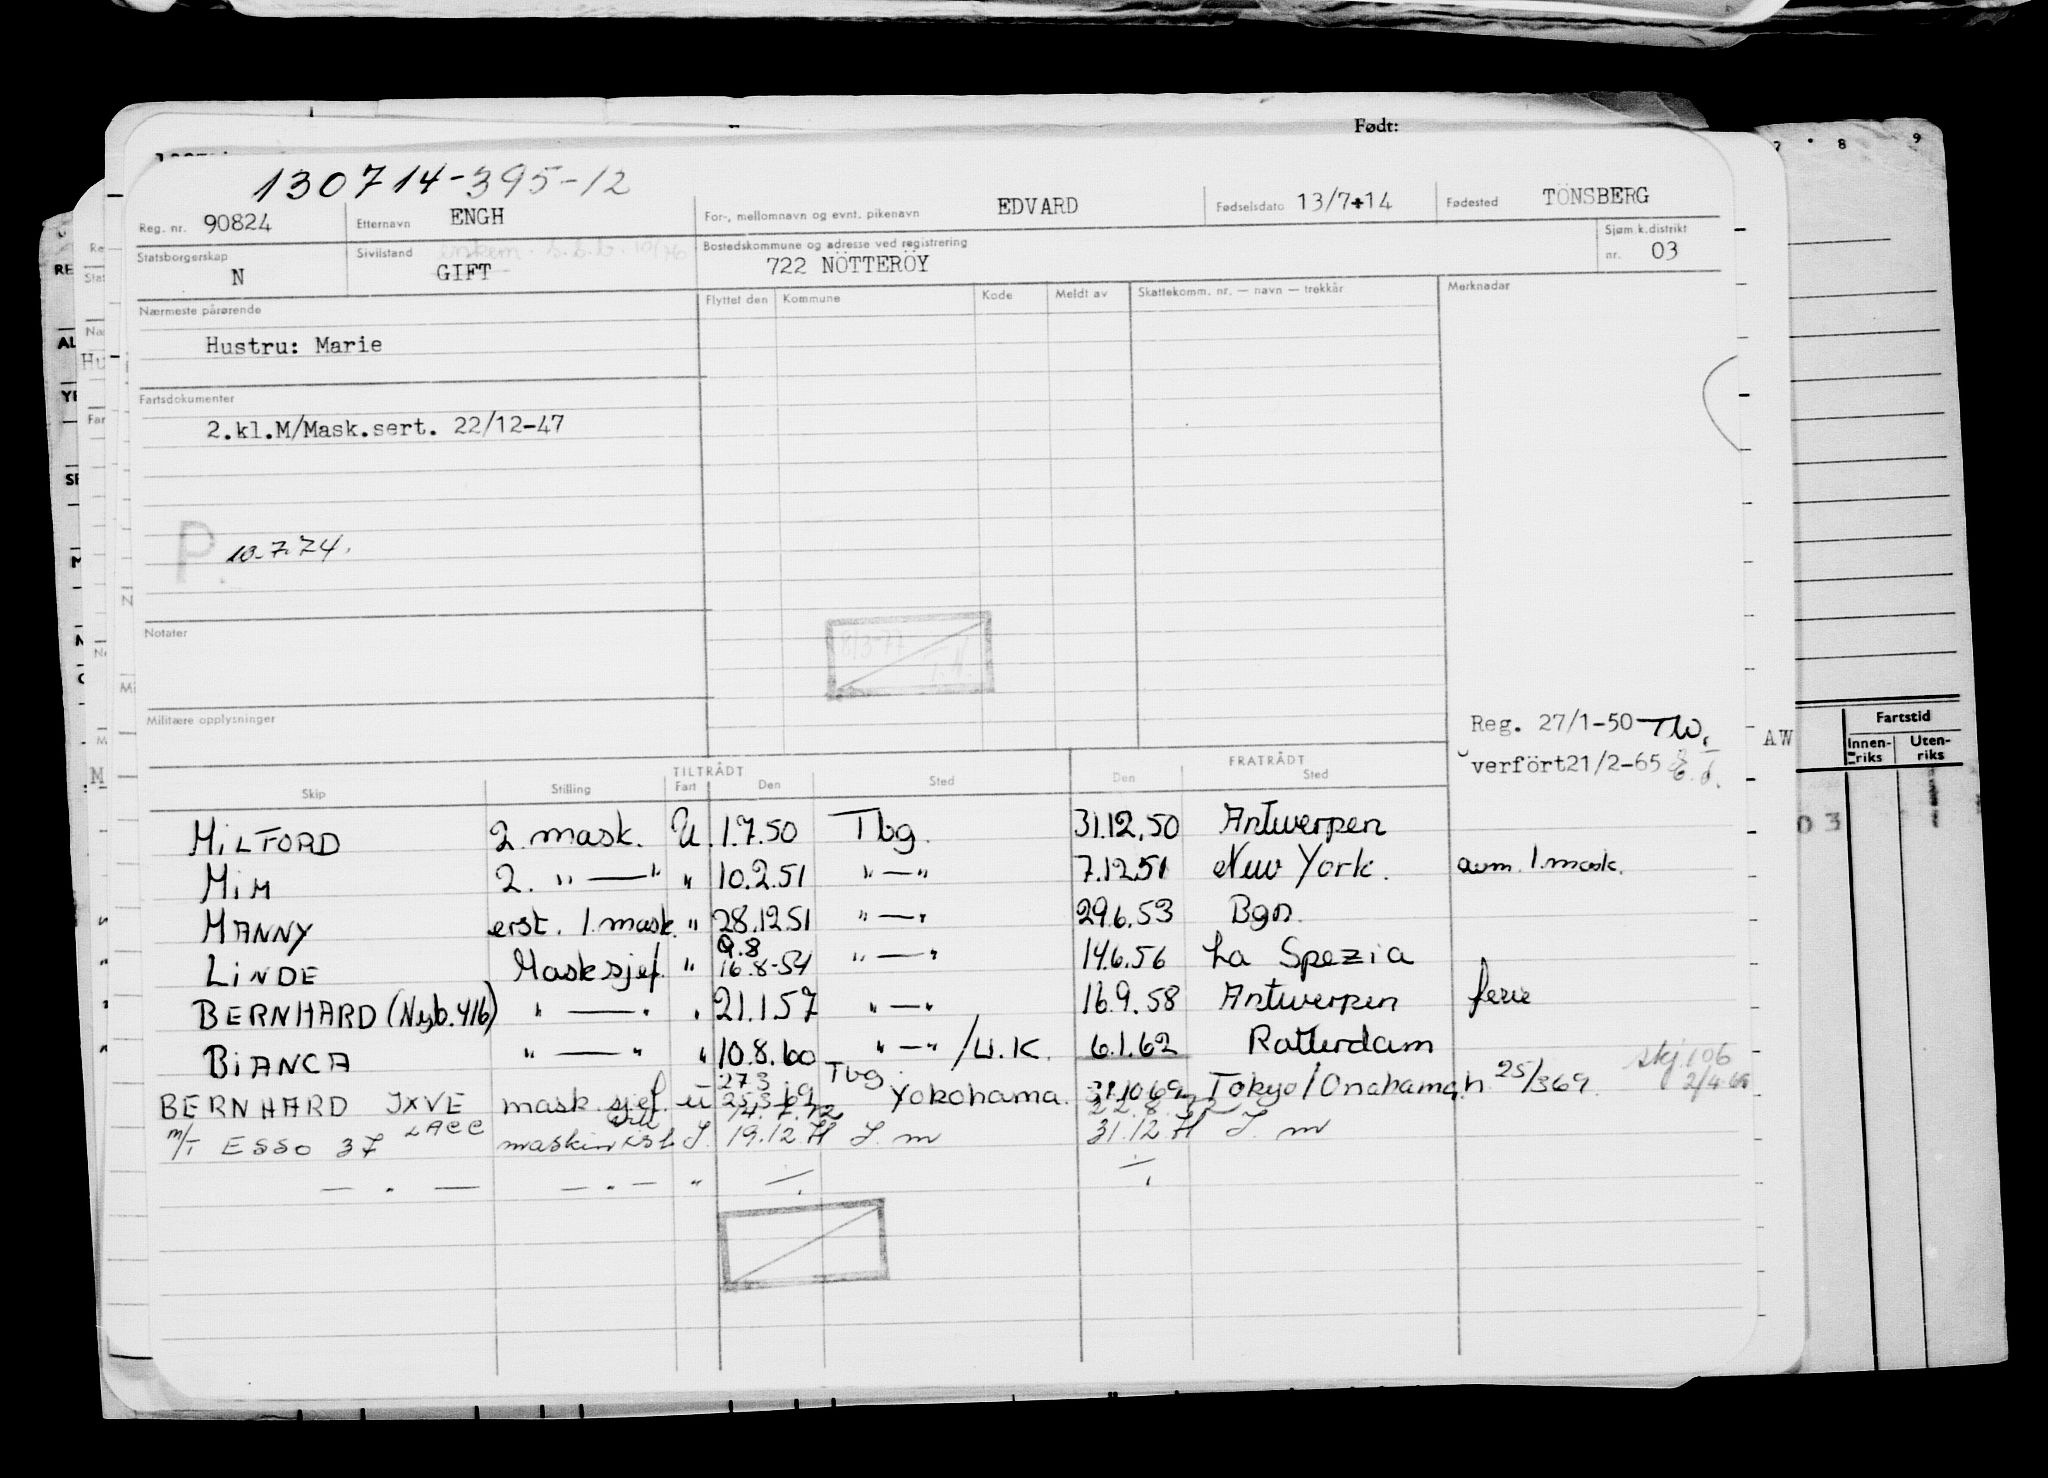 Født:
7 • 8 9
130714-395-12
Reg. nr. 90824 Etternavn ENGH For-, mellomnavn og evnt. pikenavn EDVARD Fødselsdato 13/7-14 Fødested TÖNSBERG
Statsborgerskap N Sivilstand GIFT Bostedskommune og adresse ved registrering 722 NÖTTERÖY Sjøm.k.distrikt nr. 03
Nærmeste pårørende Flyttet den Kommune Kode Meldt av Skattekomm. nr. — navn — trekkår Merknader
Hustru: Marie
Fartsdokumenter
2.kl.M/Mask.sert. 22/12-47
P. 10.7.74.
Notater
8/3-77
Militære opplysninger
Reg. 27/1-50
verfört21/2-65
AW
Fartstid
Innen-riks Uten-riks
03
TILTRÅDT FRATRÅDT
Skip Stilling Fart Den Sted Den Sted
MILFORD 2. mask. U. 1.7.50 Tbg. 31.12.50 Antwerpen
MIM 2. " — " " 10.2.51 " — " 7.12.51 New York. avm. 1.mask.
MANNY erst. 1.mask. " 28.12.51 " — " 29.6.53 Bgn.
9.8
LINDE Masksjef. " 16.8-54 " — " 14.6.56 La Spezia
BERNHARD (Nyb.416) " — " " 21.1.57 " — " 16.9.58 Antwerpen ferie
BIANCA " — " " 10.8.60 " — " /U.K. 6.1.62 Rotterdam
27.3 Tbg skj.106
BERNHARD JXVE mask.sjef. u 25.3.69 Yokohama. 31.10.69 Tokyo/Onahama 25/369. 2/4-69
LACC
m/T ESSO 37 maskin J. 19.12. J. m 31.12. J. m
— " — — " — "